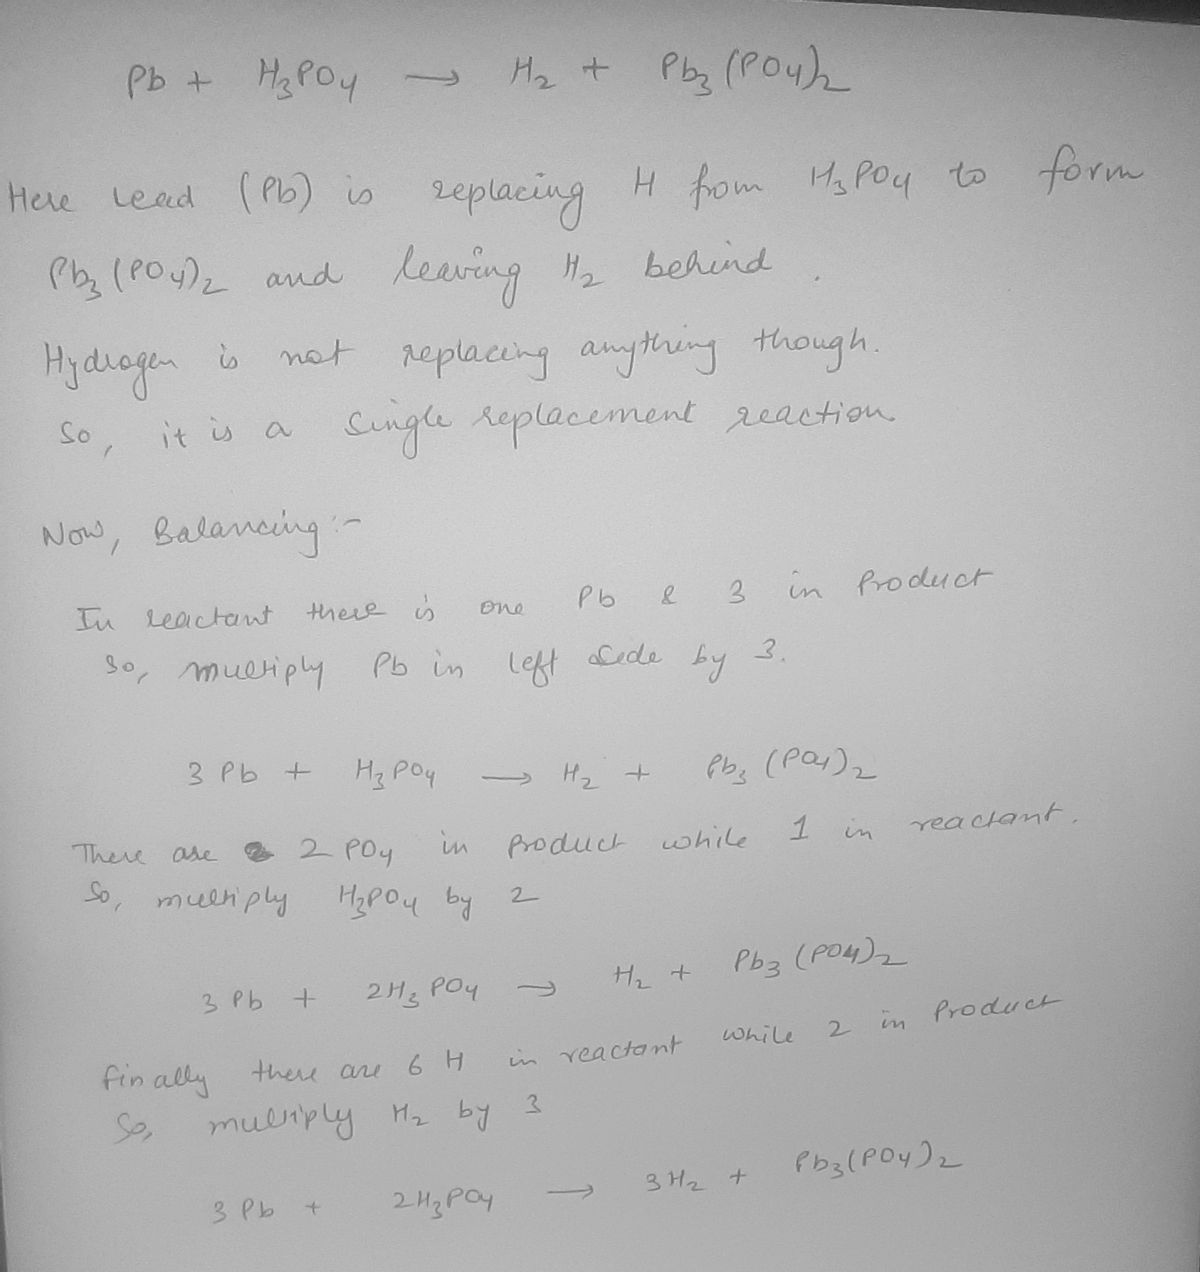 Pb + H₃PO₄ → H₂ + Pb₃(PO₄)₂
Here Lead (Pb) is replacing H from H₃PO₄ to form
Pb₃(PO₄)₂ and leaving H₂ behind.
Hydrogen is not replacing anything though.
So, it is a single replacement reaction
Now, Balancing:-
In reactant there is one Pb & 3 in Product
So, multiply Pb in left side by 3.
3 Pb + H₃PO₄ → H₂ + Pb₃(PO₄)₂
There are 2 PO₄ in Product while 1 in reactant.
So, multiply H₃PO₄ by 2
3 Pb + 2H₃PO₄ → H₂ + Pb₃(PO₄)₂
finally there are 6 H in reactant while 2 in Product
So, multiply H₂ by 3
3 Pb + 2H₃PO₄ → 3H₂ + Pb₃(PO₄)₂